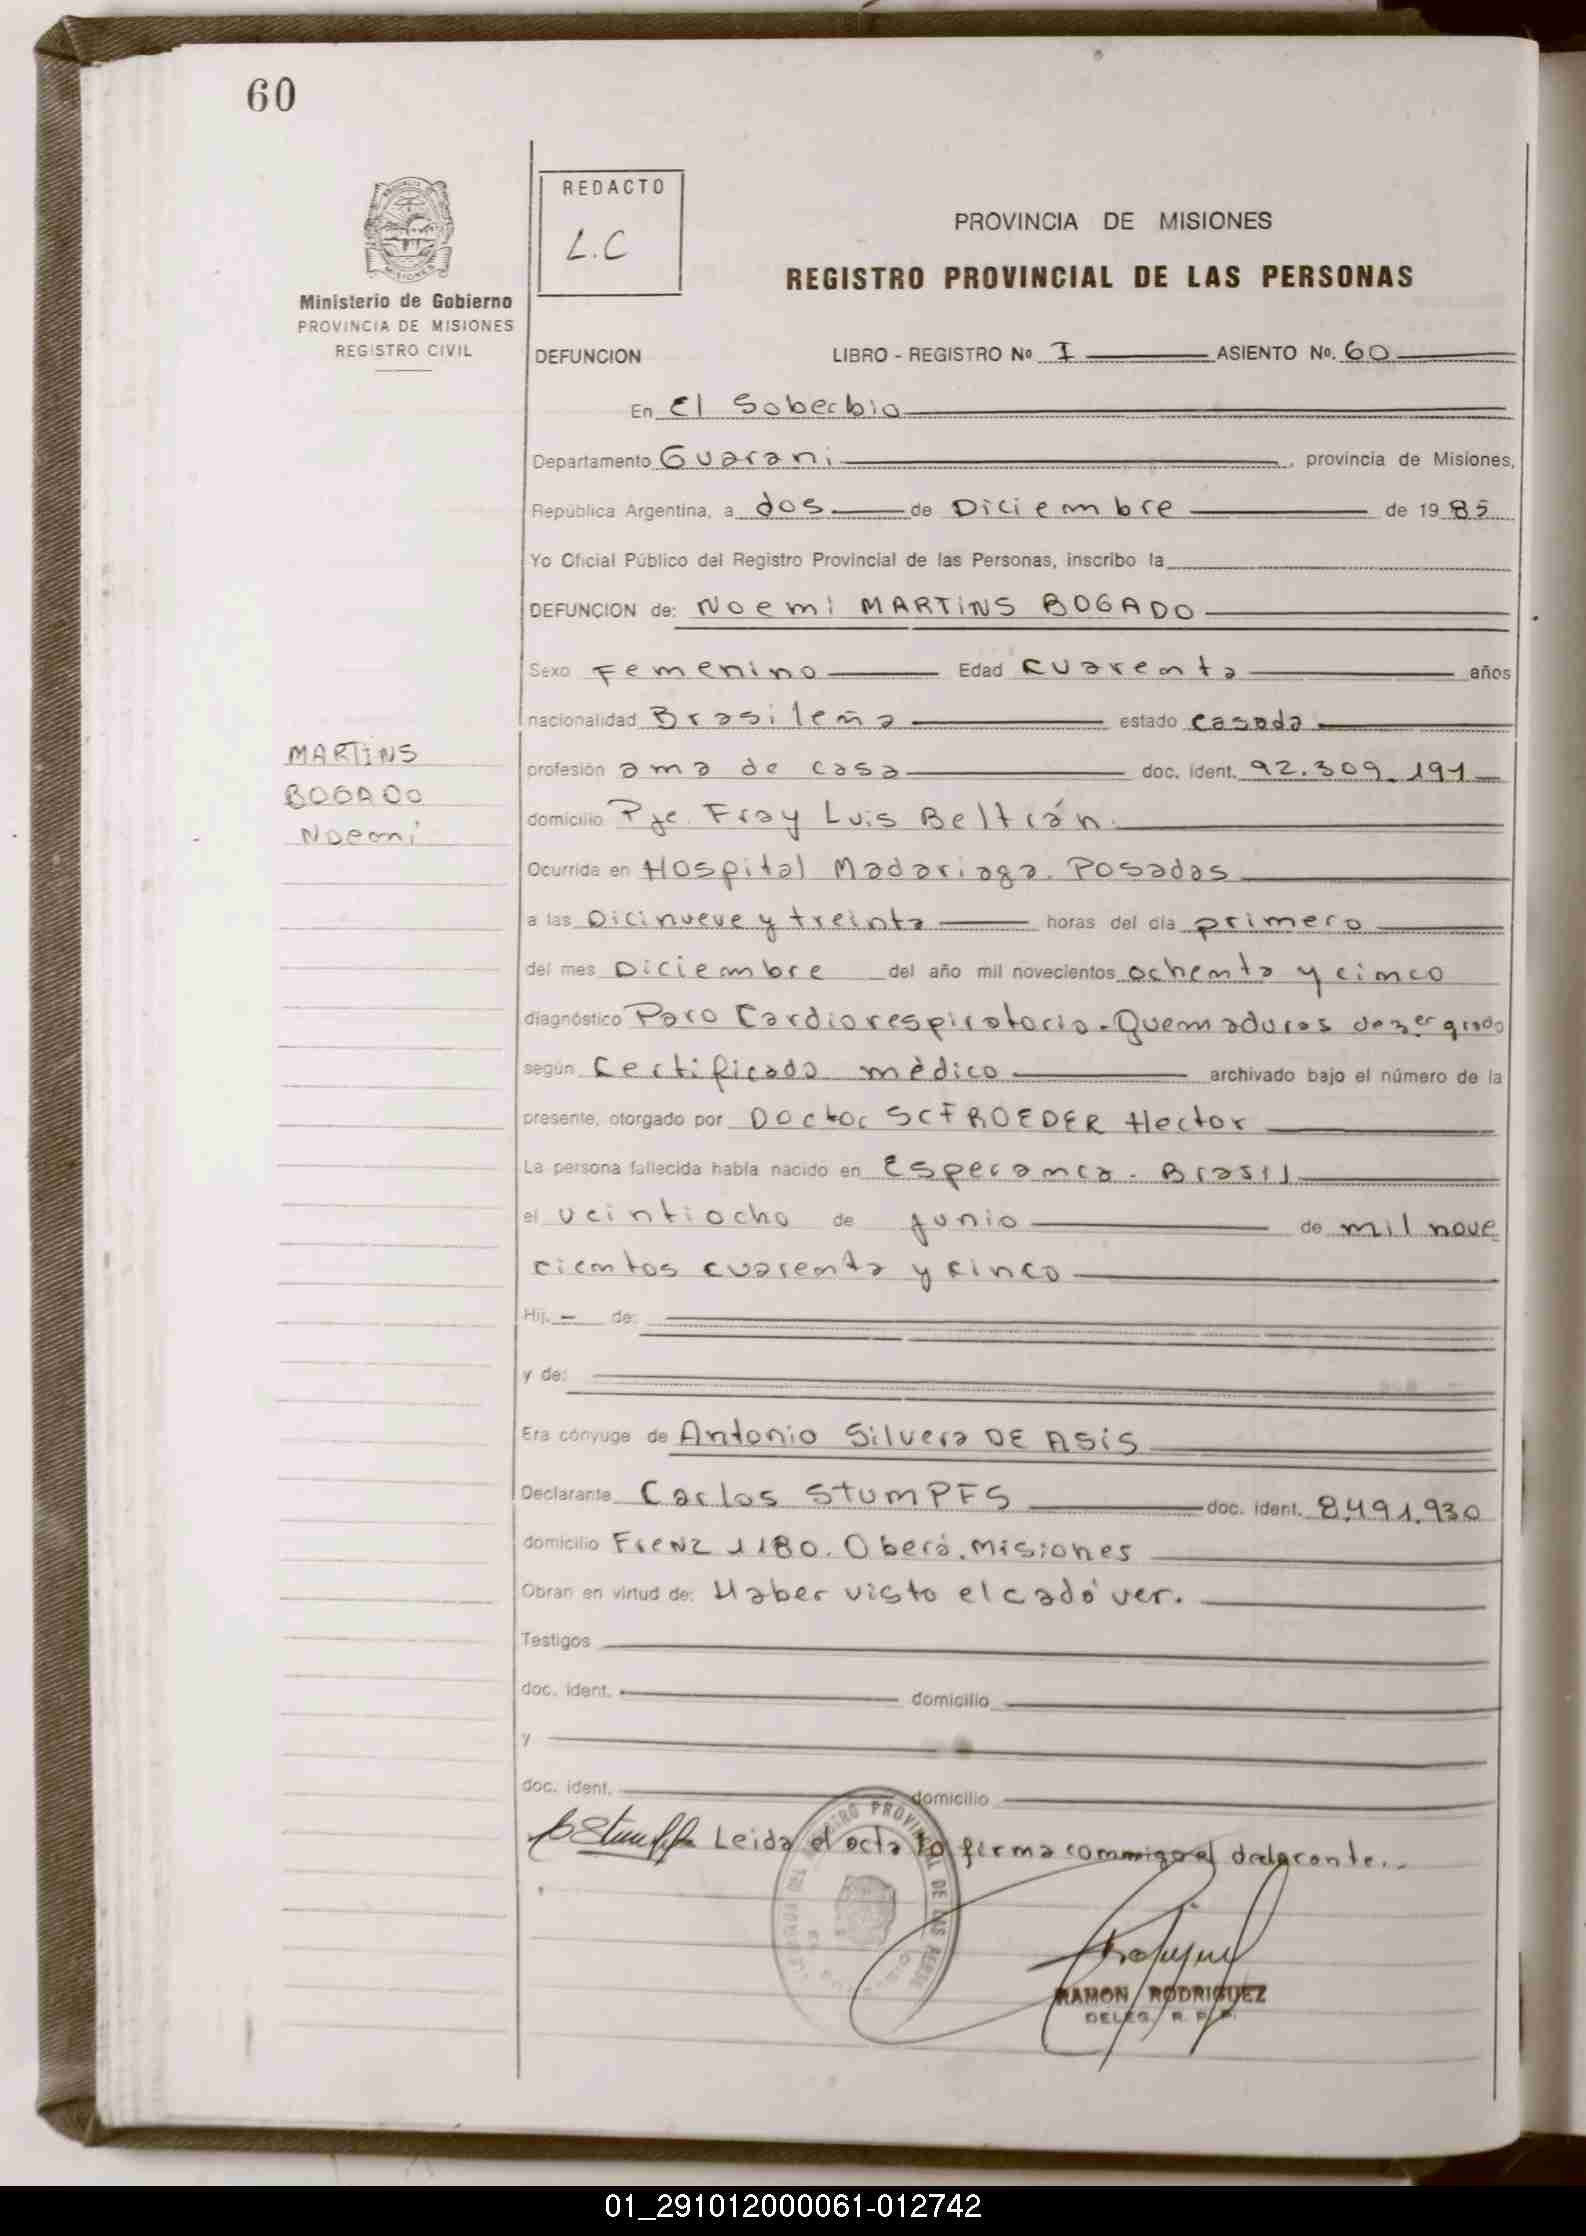 60
REDACTO
L.C
Ministerio de Gobierno
PROVINCIA DE MISIONES
REGISTRO CIVIL
PROVINCIA DE MISIONES
REGISTRO PROVINCIAL DE LAS PERSONAS
DEFUNCION LIBRO - REGISTRO Nº I ASIENTO No. 60
En El Soberbio
Departamento Guarani, provincia de Misiones,
República Argentina, a dos de Diciembre de 1985
Yo Oficial Público del Registro Provincial de las Personas, inscribo la
DEFUNCION de: Noemi MARTiNS BOGADO
Sexo Femenino Edad cuarenta años
nacionalidad Brasileña estado casada
MARTiNS
BOGADO
Noemi
profesión ama de casa doc. ident. 92.309.191
domicilio Pje. Fray Luis Beltrán.
Ocurrida en Hospital Madariaga. Posadas
a las Dicinueve y treinta horas del día primero
del mes Diciembre del año mil novecientos ochenta y cinco
diagnóstico Paro Cardiorespiratorio. Quemaduras de 3er grado
según Certificado mèdico archivado bajo el número de la
presente, otorgado por Doctor SCFROEDER Hector
La persona fallecida había nacido en Esperanca. Brasil
el veintiocho de junio de mil nove
cientos cuarenta y cinco
Hij. - de:
y de:
Era cónyuge de Antonio Silvera DE ASiS
Declarante Carlos STUMPFS doc. ident. 8.491.930
domicilio Frenz 1180. Oberá. Misiones
Obran en virtud de: Haber visto el cadáver.
Testigos
doc. ident. domicilio
y
doc. ident. domicilio
Leida el acta la firma conmigo el declarante.
RAMON RODRIGUEZ
DELEG. R. P. P.
01_291012000061-012742